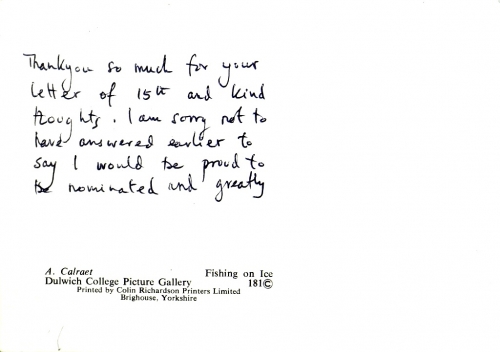 Thankyou so much for your
letter of 15th and kind
thoughts. I am sorry not to
have answered earlier to
say I would be proud to
be nominated and greatly
A. Calraet Fishing on Ice
Dulwich College Picture Gallery 181©
Printed by Colin Richardson Printers Limited
Brighouse, Yorkshire